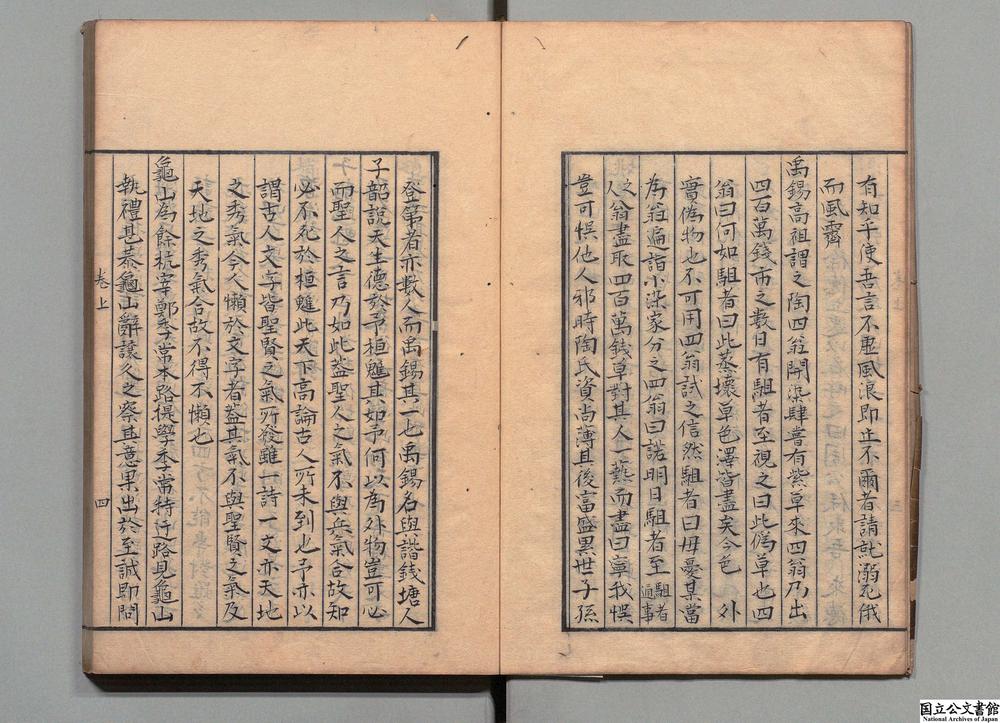 有知乎使吾言不虛風浪即止不爾者請就溺死俄
而風霽
禹錫高祖謂之陶四翁開染肆嘗有紫草來四翁乃出
四百萬錢市之數日有駔者至視之曰此僞草也四
翁曰何如駔者曰此蒸壞草色澤皆盡矣今色 外
實僞物也不可用四翁試之信然駔者曰毋憂某當
為翁遍詣小染家分之四翁曰諾明日駔者至 駔者
通事
之人翁盡取四百萬錢草對其人一爇而盡曰寧我悞
豈可悞他人邪時陶氏資尚薄且後富盛累世子孫
登第者亦數人而禹錫其一也禹錫名與諧錢塘人
子韶說天生德於予桓魋其如予何以為外物豈可必
而聖人之言乃如此蓋聖人之氣不與兵氣合故知
必不死於桓魋此天下高論古人所未到也予亦以
謂古人文字皆聖賢之氣所發雖一詩一文亦天地
之秀氣今人懶於文字者蓋其氣不與聖賢之氣及
天地之秀氣合故不得不懶也
龜山為餘杭宰鄭季常本路提學季常特迂路見龜山
執禮甚恭龜山辭讓久之察其意果出於至誠即問
卷上
四
国立公文書館
National Archives of Japan